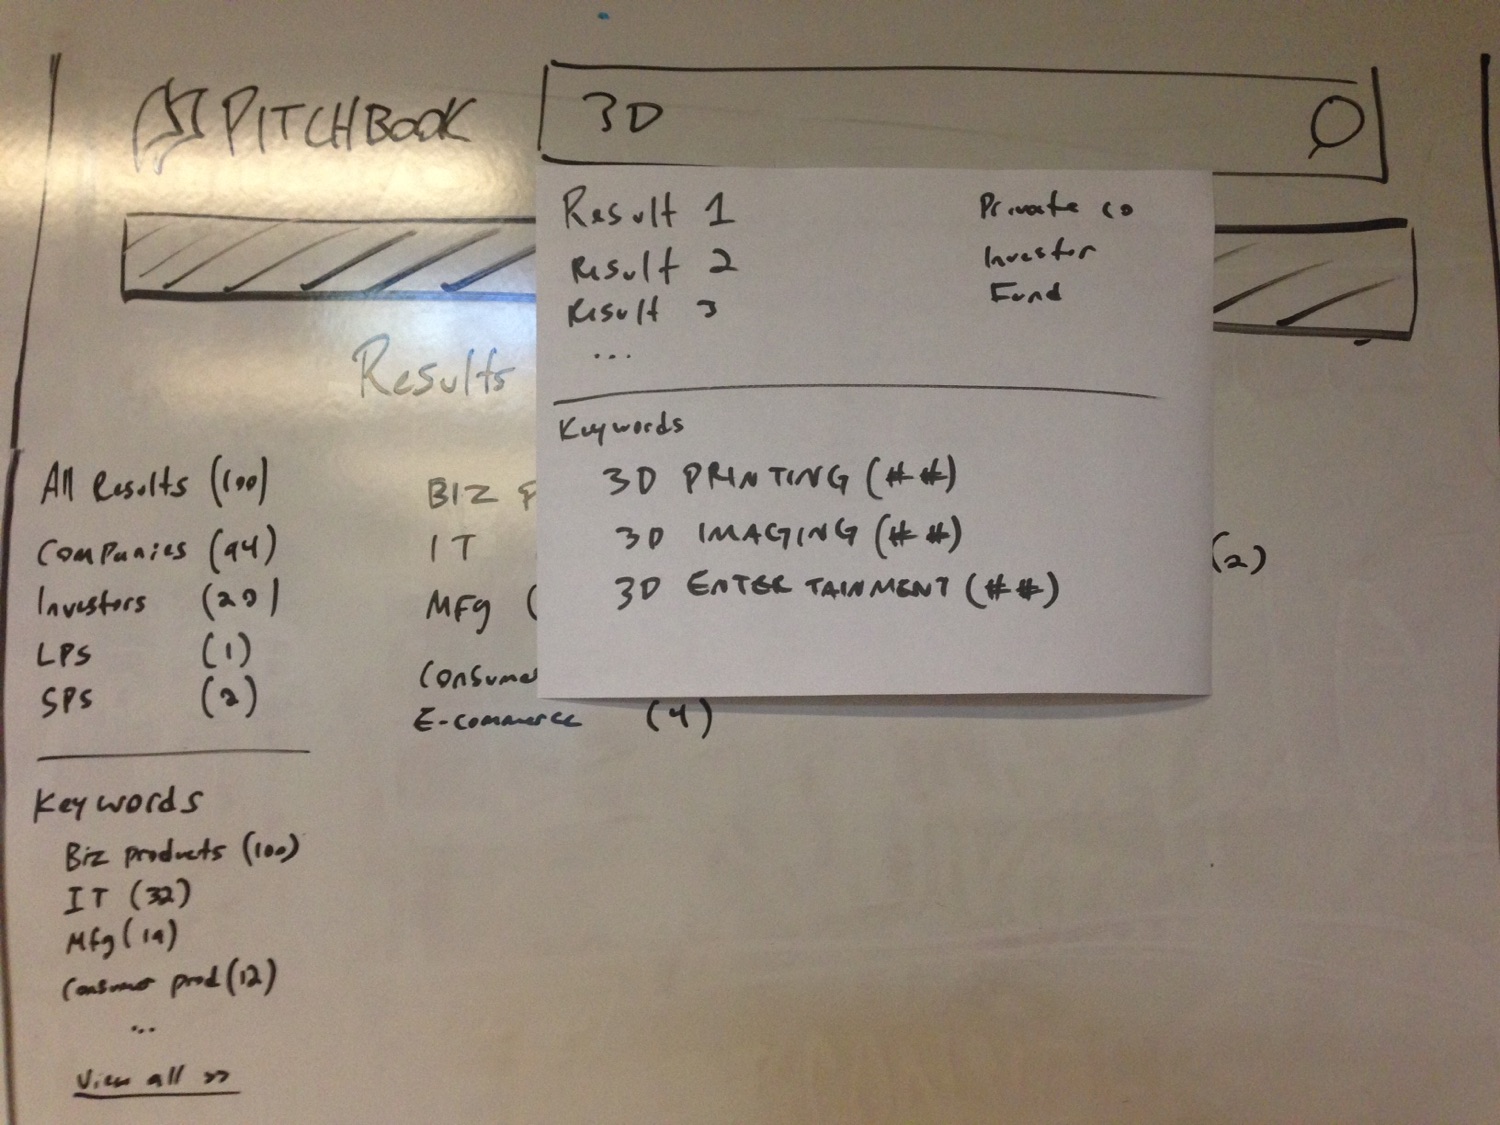 PITCHBOOK
3D
Result 1 Private co
Result 2 Investor
Result 3 Fund
...
Keywords
3D PRINTING (##)
3D IMAGING (##)
3D ENTERTAINMENT (##)
Results
All Results (100)
Companies (94)
Investors (20)
LPS (1)
SPS (2)
Keywords
Biz products (100)
IT (32)
Mfg (19)
Consumer prod (12)
...
View all >>
BIZ P
IT
(2)
Mfg (
Consumer
E-commerce (4)